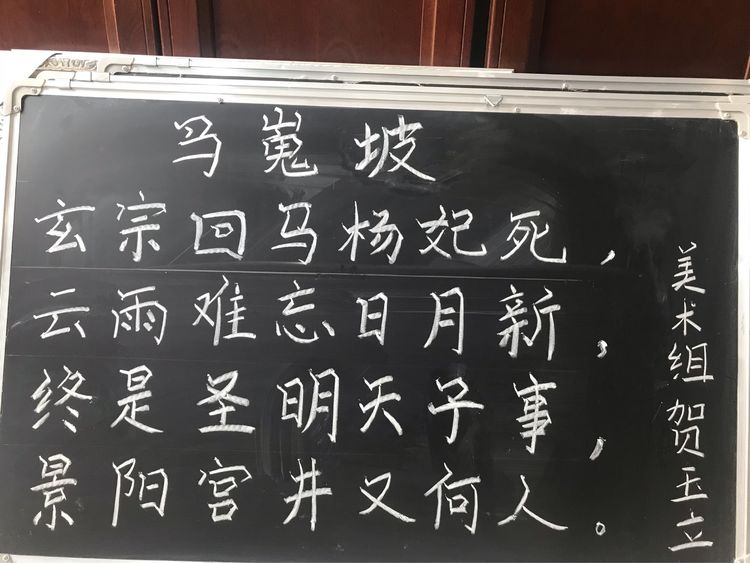 马嵬坡
玄宗回马杨妃死，
云雨难忘日月新，
终是圣明天子事，
景阳宫井又何人。
美术组贺玉立